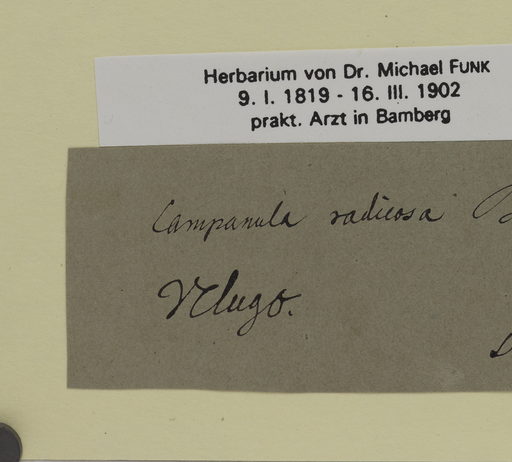 Herbarium von Dr. Michael FUNK
9. I. 1819 - 16. III. 1902
prakt. Arzt in Bamberg
Campanula radicosa